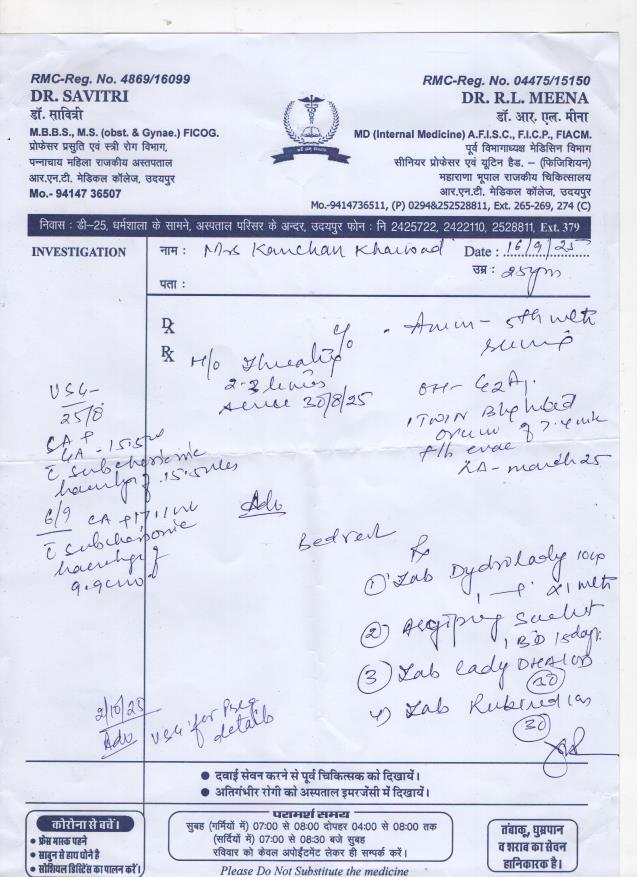 RMC-Reg. No. 4869/16099
DR. SAVITRI
डॉ. सावित्री
M.B.B.S., M.S. (obst. & Gynae.) FICOG.
प्रोफेसर प्रसुति एवं स्त्री रोग विभाग,
पन्नाचाय महिला राजकीय अस्तपताल
आर.एन.टी. मेडिकल कॉलेज, उदयपुर
Mo.- 94147 36507
RMC-Reg. No. 04475/15150
DR. R.L. MEENA
डॉ. आर. एल. मीना
MD (Internal Medicine) A.F.I.S.C., F.I.C.P., FIACM.
पूर्व विभागाध्यक्ष मेडिसिन विभाग
सीनियर प्रोफेसर एवं यूटिन हैड. – (फिजिशियन)
महाराणा भूपाल राजकीय चिकित्सालय
आर.एन.टी. मेडिकल कॉलेज, उदयपुर
Mo.-9414736511, (P) 02948&252528811, Ext. 265-269, 274 (C)
निवास : डी-25, धर्मशाला के सामने, अस्पताल परिसर के अन्दर, उदयपुर फोन : नि 2425722, 2422110, 2528811, Ext. 379
INVESTIGATION
नाम : Mrs Kanchan Kharwad Date : 16/9/25
उम्र : 25yrs
पता :
Dx
Rx
c/o 5th mth
H/o
2-3 times
since 30/8/25
OH- G2A1
TWIN Blighted
ovum of 7.4 wk
march 25
USG-
25/8
GA - 15.5
c subchorionic
haemhge of
6/9
c subchorionic
haemhge of
9.9cm
Adv
Bedrest
Rx
1) Tab Dydrolady 10mg
x 1 mth
2) Argipreg Sachet
1 BD 15days
3) Tab Lady DHA 1 OD
30
4) Tab
30
2/10/25
Adv USG for Preg
details
• दवाई सेवन करने से पूर्व चिकित्सक को दिखायें।
• अतिगंभीर रोगी को अस्पताल इमरजेंसी में दिखायें।
कोरोना से बचें।
• फ्रेम मास्क पहने
• साबुन से हाथ धोने है
• सोशियल डिस्टिंस का पालन करें।
परामर्श समय
सुबह (गर्मियों में) 07:00 से 08:00 दोपहर 04:00 से 08:00 तक
(सर्दियों में) 07:00 से 08:30 बजे सुबह
रविवार को केवल अपोईंटमेंट लेकर ही सम्पर्क करें।
तंबाकू, धुम्रपान
व शराब का सेवन
हानिकारक है।
Please Do Not Substitute the medicine